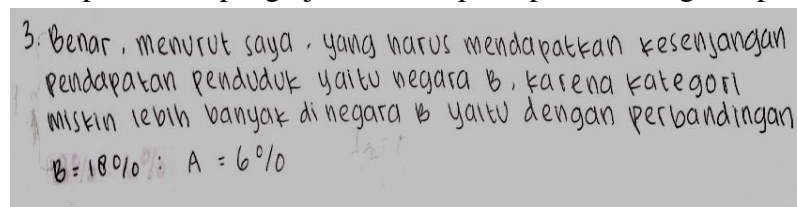 3. Benar, menurut saya, yang harus mendapatkan kesenjangan
pendapatan penduduk yaitu negara B, karena kategori
miskin lebih banyak di negara B yaitu dengan perbandingan
B = 18% : A = 6%